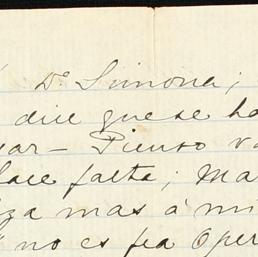 Da. Simona;
dice que se ha
ar - Pienso va
hace falta; Ma
za mas á mi
no es fea Oper